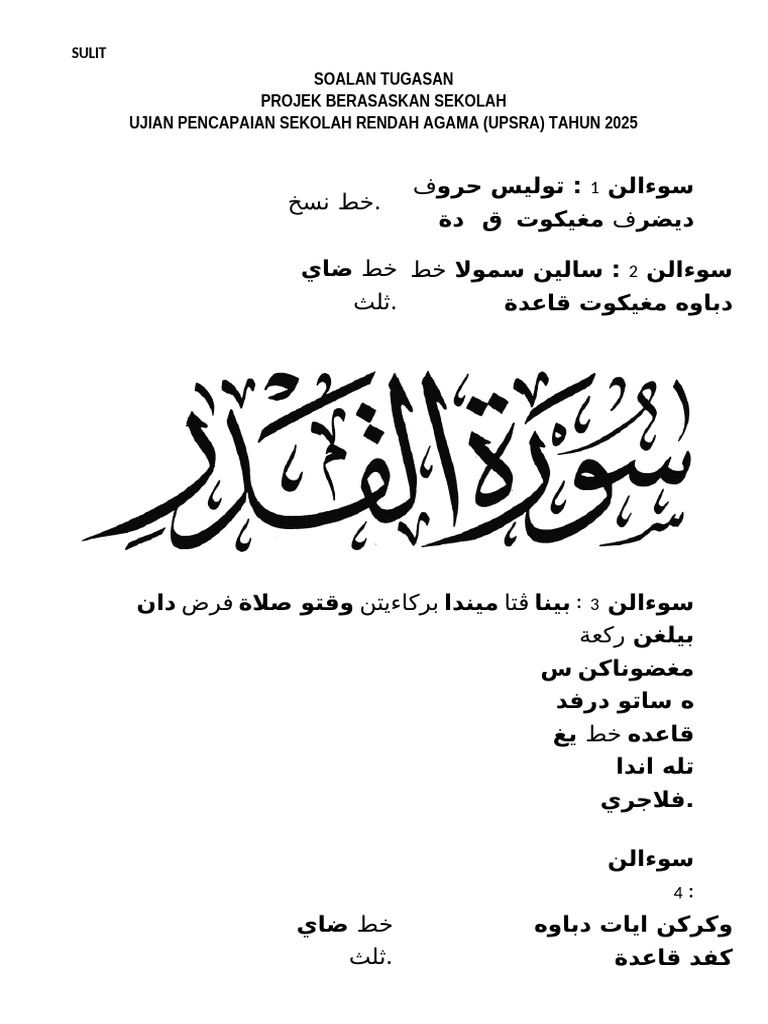 SULIT
SOALAN TUGASAN
PROJEK BERASASKAN SEKOLAH
UJIAN PENCAPAIAN SEKOLAH RENDAH AGAMA (UPSRA) TAHUN 2025
سوءالن 1 : توليس حروف
ديضرف مغيكوت ق دة
خط نسخ.
سوءالن 2 : سالين سمولا خط
دباوه مغيكوت قاعدة
خط ضاي
ثلث.
سُوْرَةُ الْقَدْرِ
سوءالن 3 : بينا ڤتا ميندا بركاءيتن وقتو صلاة فرض دان
بيلغن ركعة
مغضوناكن س
ه ساتو درفد
قاعده خط يغ
تله اندا
فلاجري.
سوءالن
4 :
وكركن ايات دباوه
كفد قاعدة
خط ضاي
ثلث.